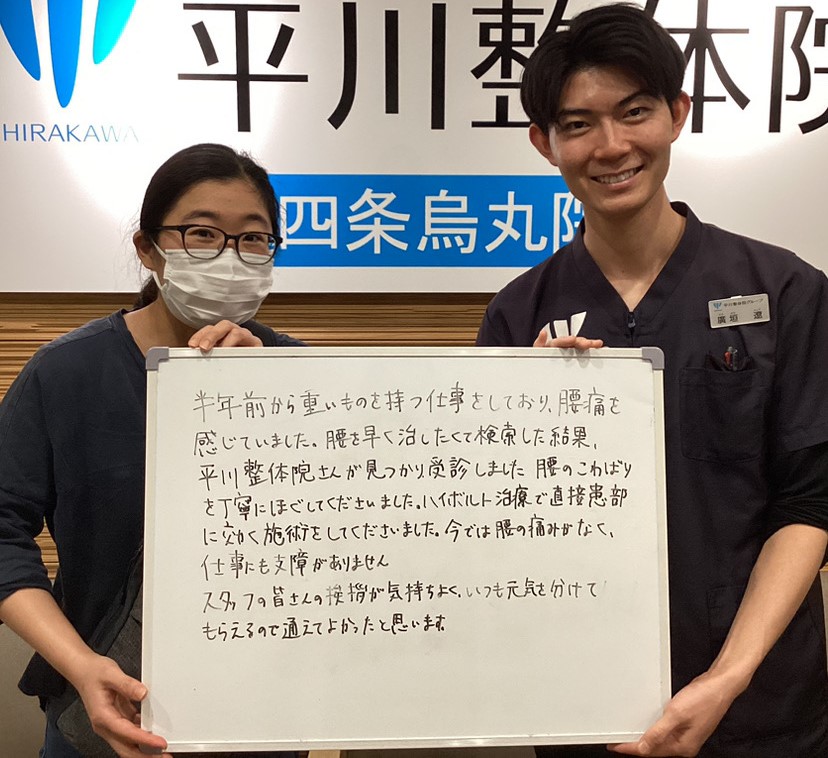 平川整体院
HIRAKAWA
四条烏丸院
平川整体院グループ
廣垣 遼
半年前から重いものを持つ仕事をしており、腰痛を
感じていました。腰を早く治したくて検索した結果、
平川整体院さんが見つかり受診しました 腰のこわばり
を丁寧にほぐしてくださいました。ハイボルト治療で直接患部
に効く施術をしてくださいました。今では腰の痛みがなく、
仕事にも支障がありません
スタッフの皆さんの挨拶が気持ちよく、いつも元気を分けて
もらえるので通えてよかったと思います。